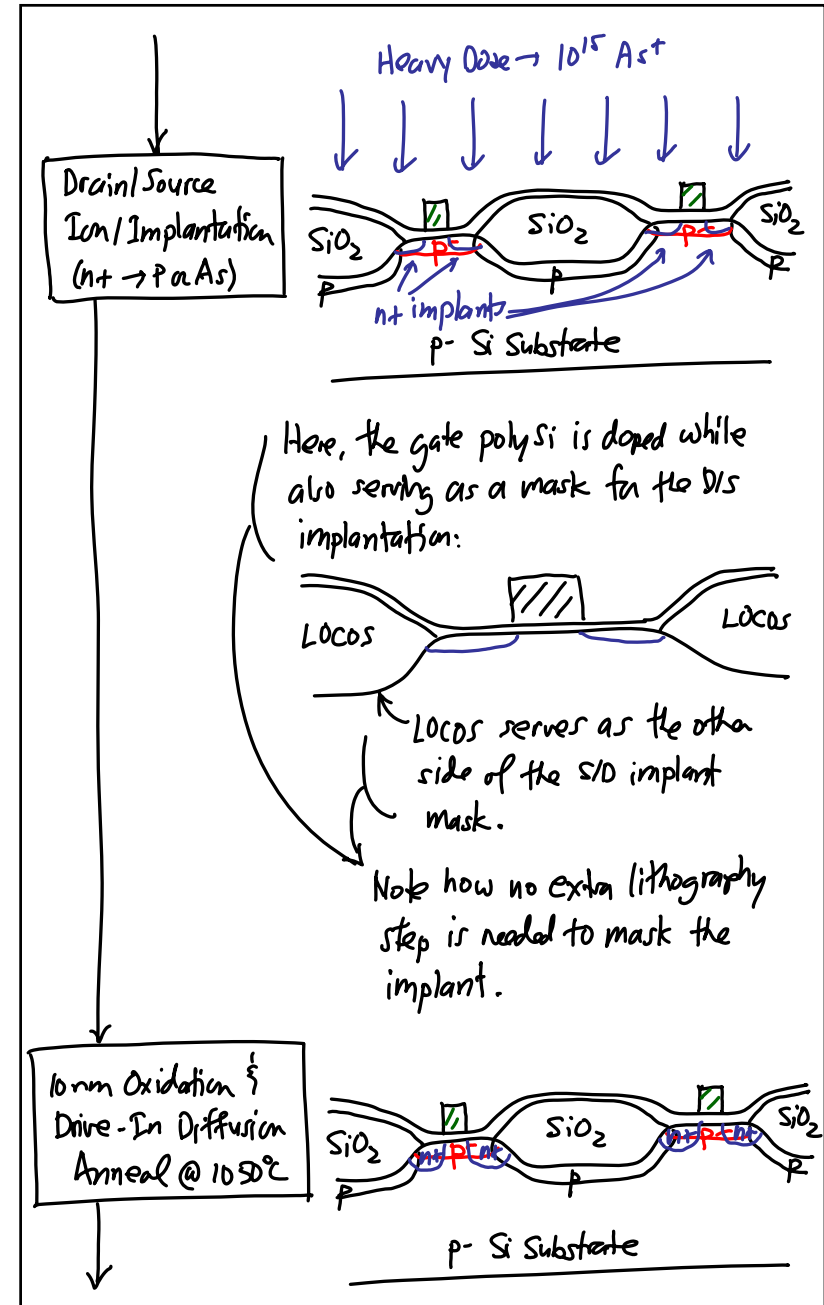 Heavy Dose → 10¹⁵ As⁺
Drain/Source
Ion/Implantation
(n+ → P or As)
SiO₂
p-
SiO₂
p-
SiO₂
P
P
P
n+ implants
p- Si Substrate
Here, the gate polySi is doped while
also serving as a mask for the D/S
implantation:
LOCOS
LOCOS
LOCOS serves as the other
side of the S/D implant
mask.
Note how no extra lithography
step is needed to mask the
implant.
10nm Oxidation &
Drive-In Diffusion
Anneal @ 1050°C
SiO₂
n+
p-
n+
SiO₂
n+
p-
n+
SiO₂
P
P
P
p- Si Substrate